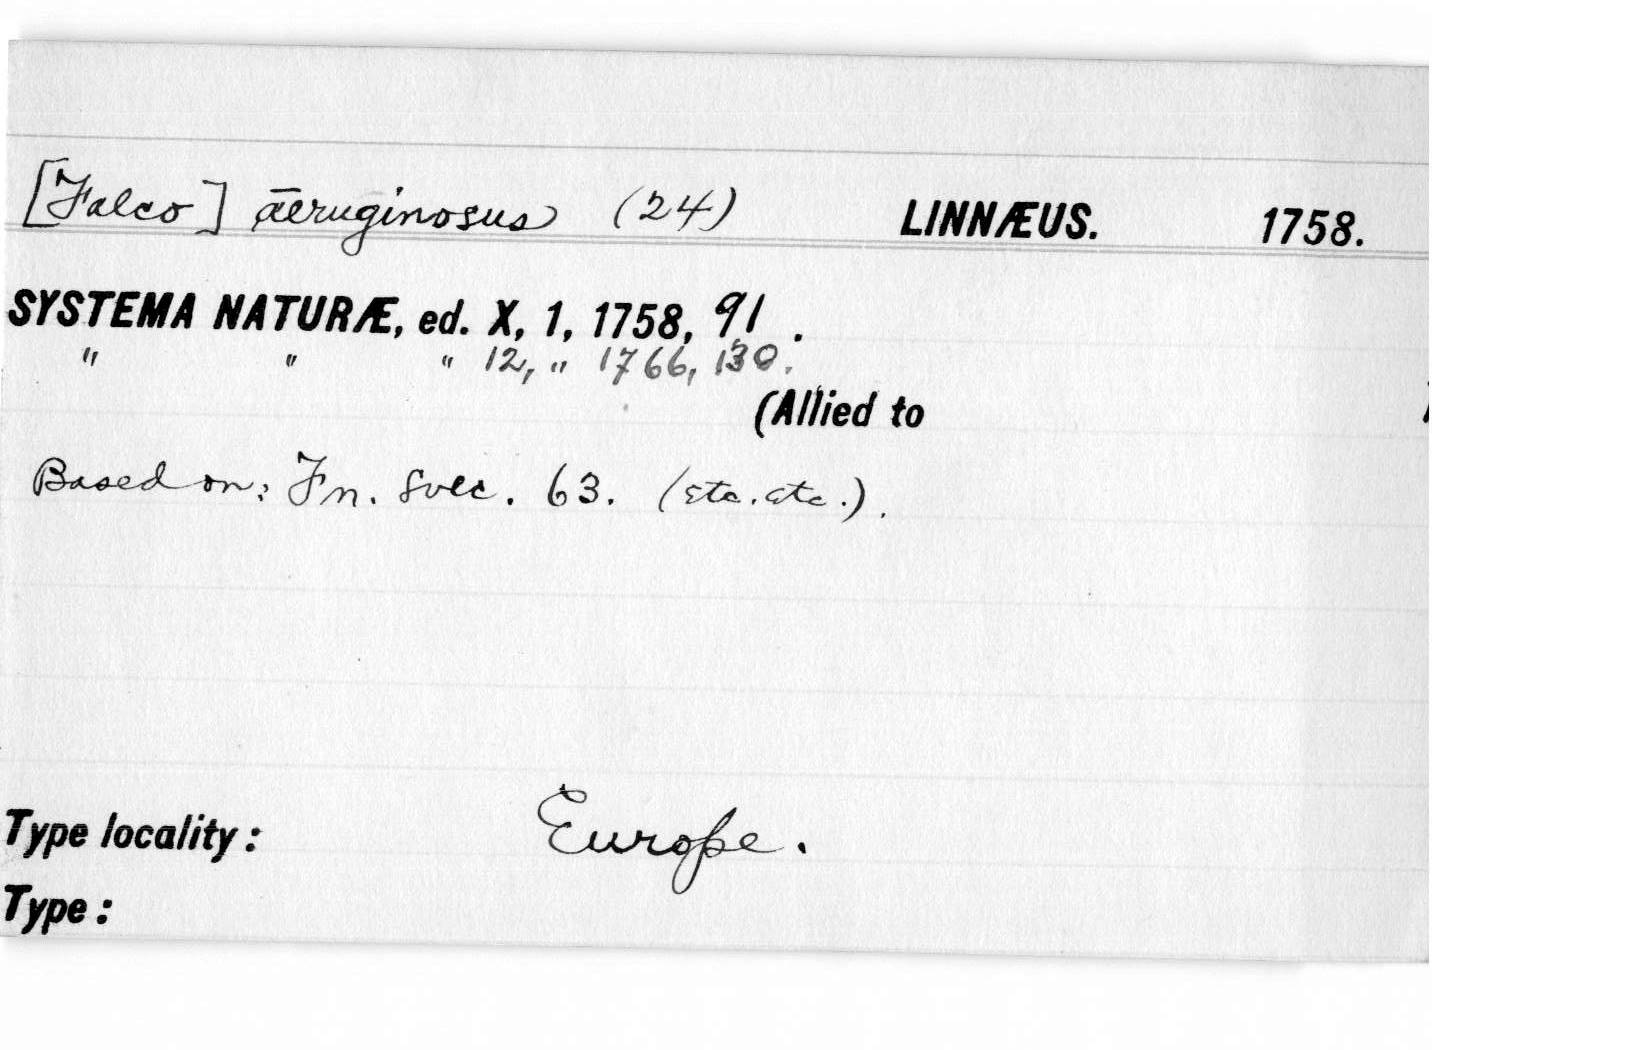 [Falco] æruginosus (24) LINNÆUS. 1758.
SYSTEMA NATURÆ, ed. X, 1, 1758, 91.
" " " 12, " 1766, 130.
(Allied to
Based on: Fn. Svec. 63. (etc. etc.).
Type locality: Europe.
Type: